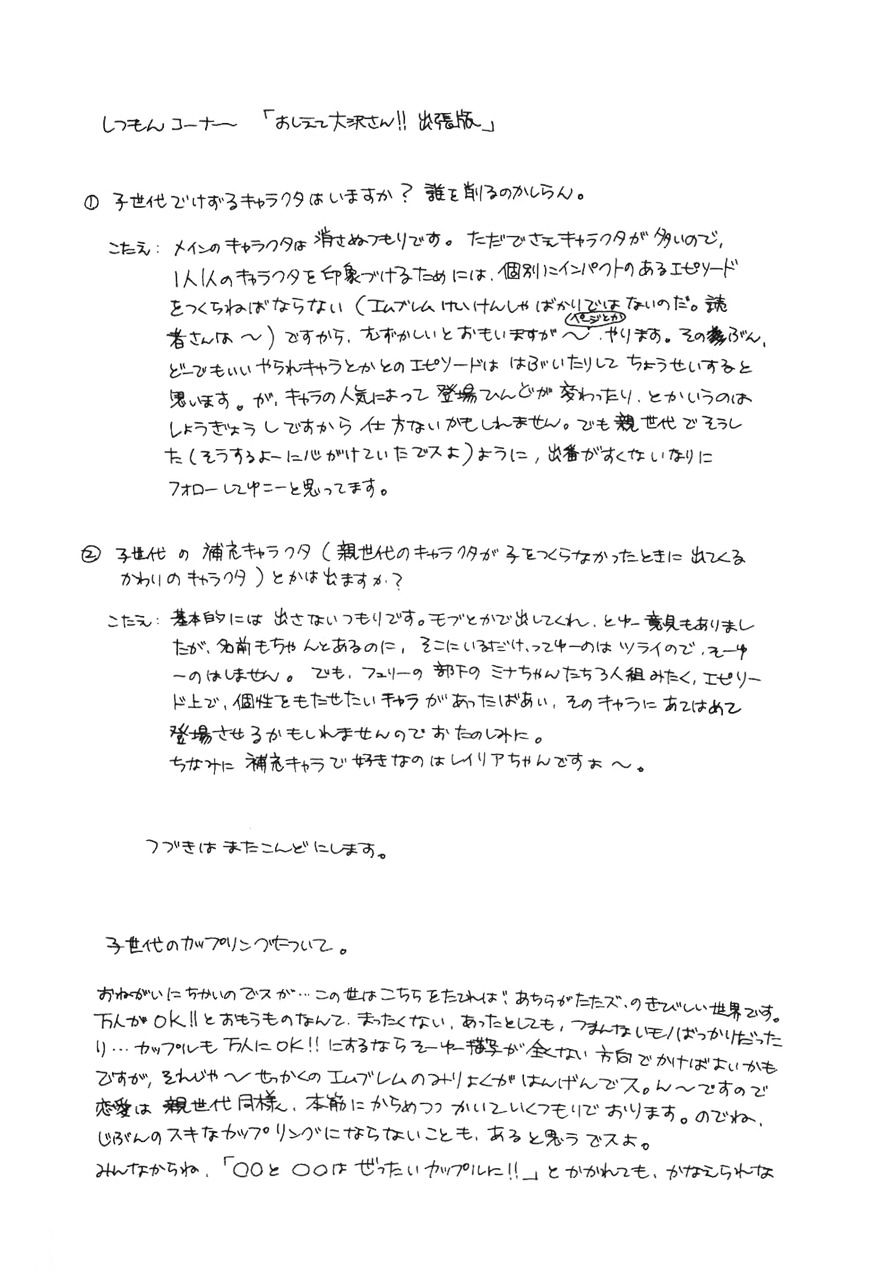 しつもんコーナー 「おしえて大沢さん!! 出張版」
① 子世代でけずるキャラクタはいますか? 誰を削るのかしらん。
こたえ: メインのキャラクタは 消さぬつもりです。ただでさえキャラクタが多いので、
1人1人のキャラクタを印象づけるためには、個別にインパクトのあるエピソード
をつくらねばならない(エムブレムけいけんしゃばかりではないのだ。読
者さんは〜)ですから、むずかしいとおもいますが〜(ページとか)、やります。そのぶん、
どーでもいいやられキャラとかとのエピソードは はぶいたりして ちょうせいすると
思います。が、キャラの人気によって 登場ひんどが 変わったり、とかいうのは
しょうぎょうしですから 仕方ないかもしれません。でも 親世代でそうし
た(そうするよーに心がけていたでスよ)ように、出番がすくないなりに
フォローしてゆこーと思ってます。
② 子世代の 補充キャラクタ(親世代のキャラクタが子をつくらなかったときに 出てくる
かわりのキャラクタ)とかは出ますか?
こたえ: 基本的には 出さないつもりです。モブとかで出してくれ、とゆー意見もありまし
たが、名前もちゃんとあるのに、そこにいるだけ、ってゆーのは ツライので、そーゆ
ーのはしません。でも、フュリーの 部下の ミナちゃんたち3人組みたく、エピソー
ド上で、個性をもたせたいキャラがあったばあい、そのキャラに あてはめて
登場させるかもしれませんので おたのしみに。
ちなみに 補充キャラで好きなのはレイリアちゃんですよ〜。
つづきは またこんどにします。
子世代のカップリングについて。
おねがいにちかいのでスが…この世はこちらをたてれば、あちらがたたズ、のきびしい世界です。
万人がOK!!とおもうものなんて、まったくない、あったとしても、つまんないモノばっかりだった
り…カップルも万人にOK!!にするならそーゆー描写が全くない方向でかけばよいかも
ですが、それじゃ〜せっかくのエムブレムのみりょくがはんげんでス。ん〜ですので
恋愛は 親世代同様、本筋にからめつつ かいていくつもりでおります。のでね、
じぶんのスキなカップリングにならないことも、あると思うでスよ。
みんなからね、「○○と○○は ぜったいカップルに!!」とかかれても、かなえられな